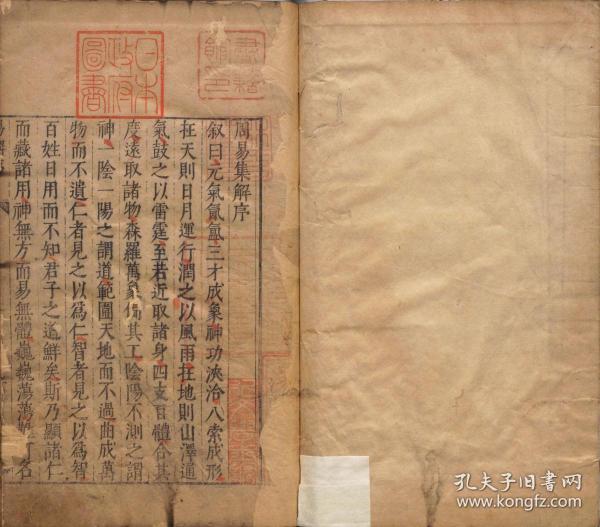 日本
政府
圖書
周易集解序
叙曰元氣氤氳三才成象神功浹洽八索成形
在天則日月運行潤之以風雨在地則山澤通
氣鼓之以雷霆至若近取諸身四支百體合其
度遠取諸物森羅萬象備其工陰陽不測之謂
神一陰一陽之謂道範圍天地而不過曲成萬
物而不遺仁者見之以爲仁智者見之以爲智
百姓日用而不知君子之道鮮矣斯乃顯諸仁
而藏諸用神無方而易無體巍巍蕩蕩難可名
孔夫子旧书网
www.kongfz.com